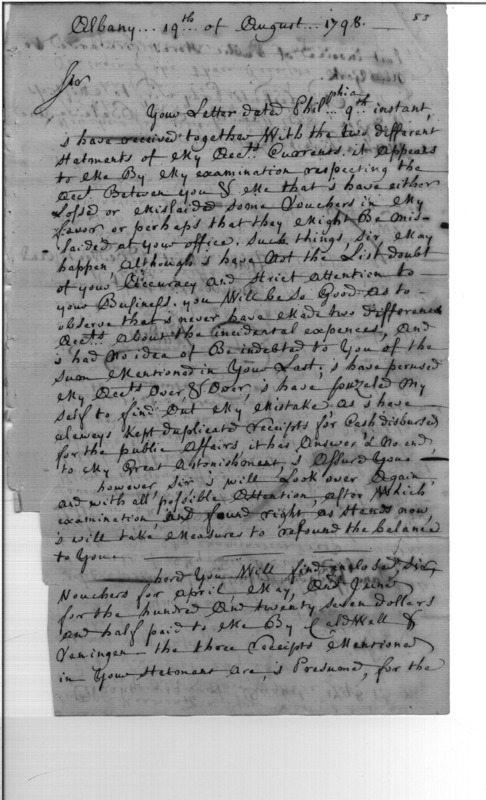 85
Albany... 19th of August... 1798.
Sir
Your Letter dated Phil..phia 9th instant,
i have received together With the two different
statments of My Acc.ts Currents. it Appears
to Me By My examination respecting the
Acc.t Between You & Me that i have either
Losed or Mislaided some Vouchers in My
favor or perhaps that they Might Be Mis-
laided at your office. such things, Sir, May
happen, Although i have Not the List doubt
of your Accuracy and strict Attention to
your Business. you Will be so Good As to -
observe that i never have Made two difference
Acc.ts About the incidental expences, And
i had No idea of Be indebted to You of the
sum Mentioned in Your Last. i have perused
My Acc.ts Over & Over, i have puzeled My
self to find Out My Mistake. As i have
always kept duplicated receipts for Cash disbursed
for the public Affairs, it has Answer'd No end,
to My Great Astonishment, i Assurd You -
however, Sir i will Look over Again
and with all possible Attention, after Which
examination and found right as stands now,
i will take Measures to refound the balance
to You -
herd You Will find enclosed, Sir,
Vouchers for april, May, And June
for the hundred And twenty seven dollars
and half paid to Me By Caldwell &
Vaningen - the three receipts Mentioned
in Your statement Are, i Presume, for the